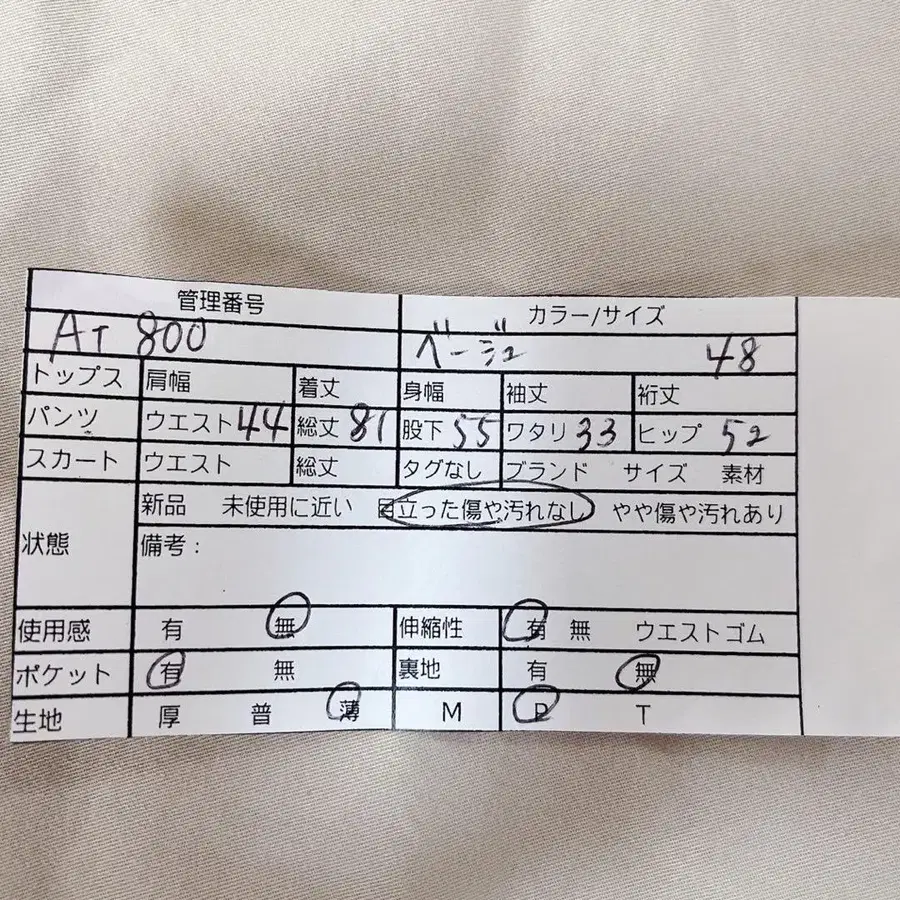 管理番号 カラー/サイズ
AT 800 ベージュ 48
トップス 肩幅 着丈 身幅 袖丈 裄丈
パンツ ウエスト 44 総丈 81 股下 55 ワタリ 33 ヒップ 52
スカート ウエスト 総丈 タグなし ブランド サイズ 素材
状態 新品 未使用に近い 目立った傷や汚れなし やや傷や汚れあり
備考：
使用感 有 無 伸縮性 有 無 ウエストゴム
ポケット 有 無 裏地 有 無
生地 厚 普 薄 M P T